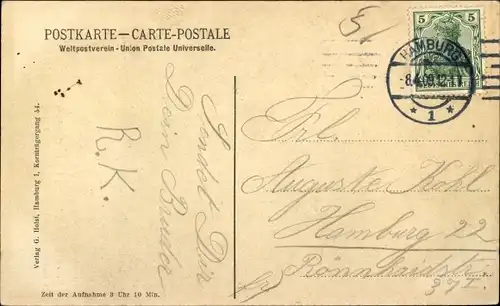 POSTKARTE — CARTE-POSTALE
Weltpostverein - Union Postale Universelle.
5 5
HAMBURG
-8.4.09.12-1
* 1 *
Sendet Dir
Dein Bruder
R. K.
Frl.
Auguste Kohl
Hamburg 22
Verlag G. Holst, Hamburg 1, Kornträgergang 54.
Zeit der Aufnahme 3 Uhr 10 Min.